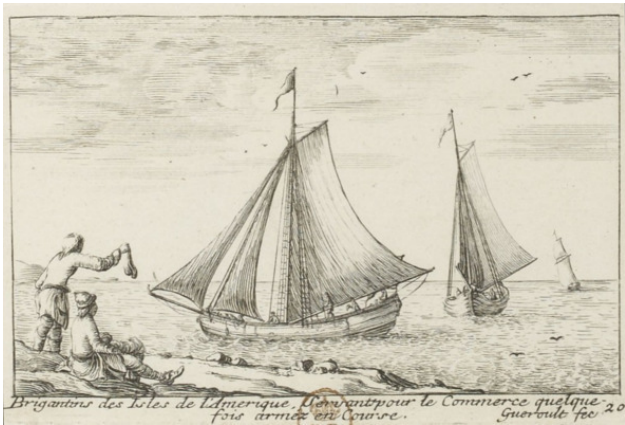 Brigantins des Isles de L'Amerique, Servant pour le Commerce quelque-
fois armez en Course.
Gueroult fec 20